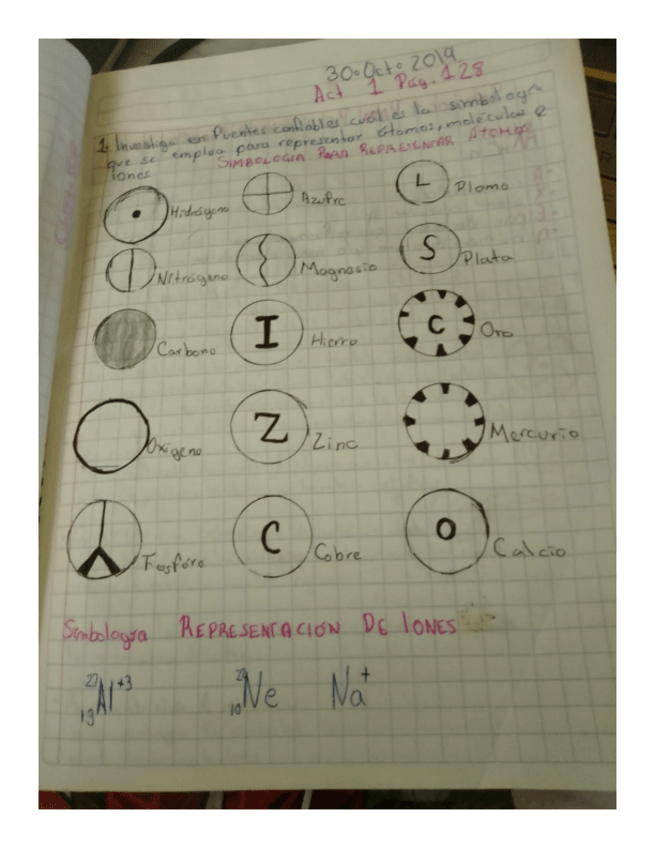 30-Oct-2019
Act 1 Pag. 128
1. Investiga en fuentes confiables cuál es la simbología
que se emplea para representar átomos, moléculas e
iones
SIMBOLOGIA PARA REPRESENTAR ATOMOS
Hidrógeno
Azufre
L Plomo
Nitrógeno
Magnesio
S Plata
Carbono
I Hierro
C Oro
Oxigeno
Z Zinc
Mercurio
Fosfóro
C Cobre
O Calcio
Simbología REPRESENTACIÓN DE IONES
27 13 Al+3
20 10 Ne
Na+